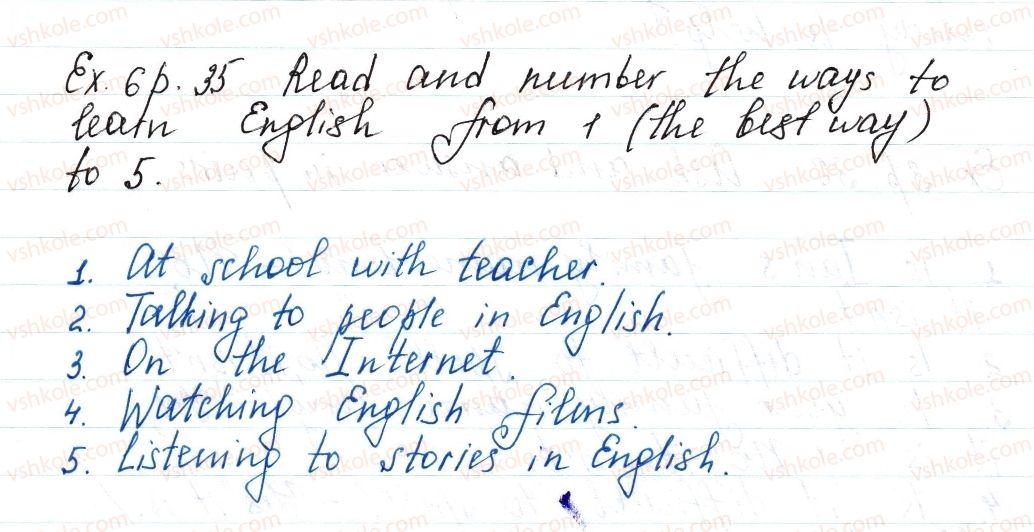 Ex. 6 p. 35 Read and number the ways to
learn English from 1 (the best way)
to 5.
1. At school with teacher.
2. Talking to people in English.
3. On the Internet.
4. Watching English films.
5. Listening to stories in English.